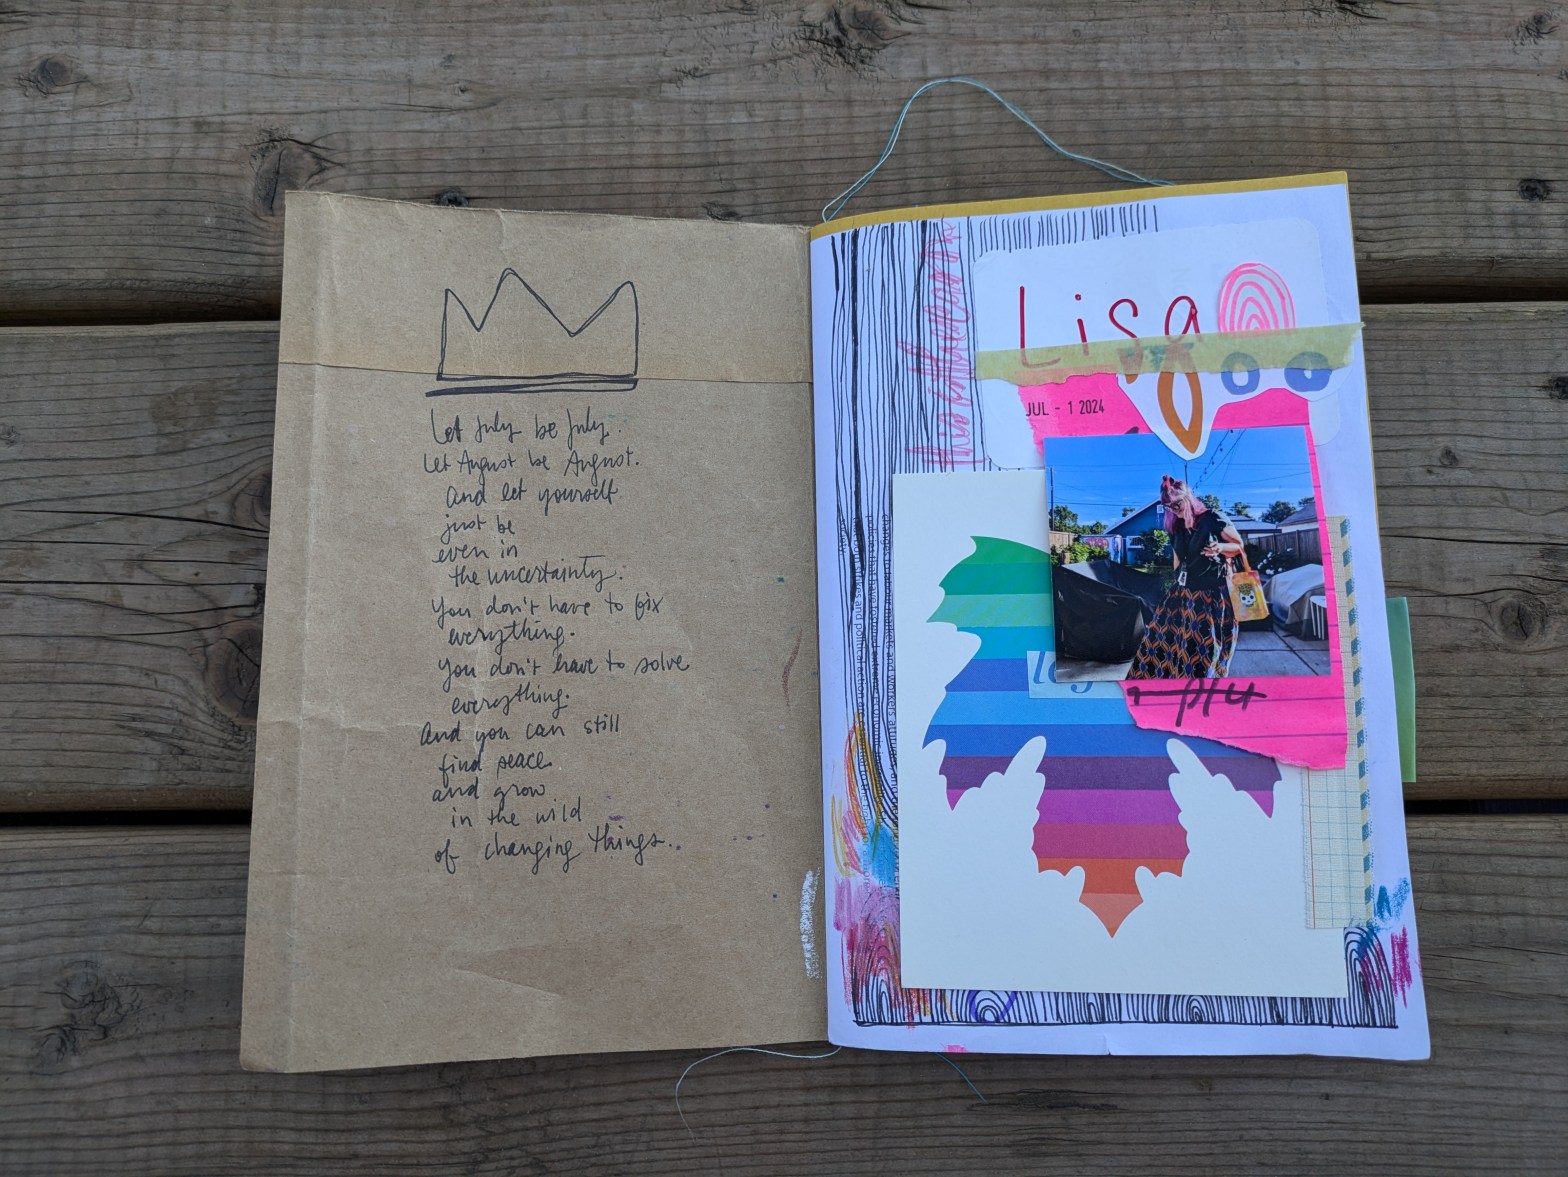 Let July be July.
Let August be August.
And let yourself
just be
even in
the uncertainty.
You don't have to fix
everything.
You don't have to solve
everything.
And you can still
find peace
and grow
in the wild
of changing things..
Lisa
JUL - 1 2024